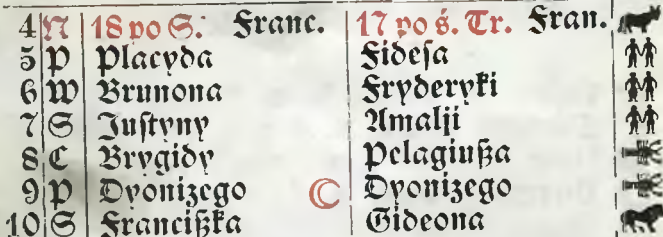 4 N 18 po S. Franc. 17 po ś. Tr. Fran.
5 P Placyda Fideſa
6 W Brunona Fryderyki
7 S Juſtyny Amalji
8 C Brygidy Pelagiuſza
9 P Dyonizego ☾ Dyonizego
10 S Franciſzka Gideona